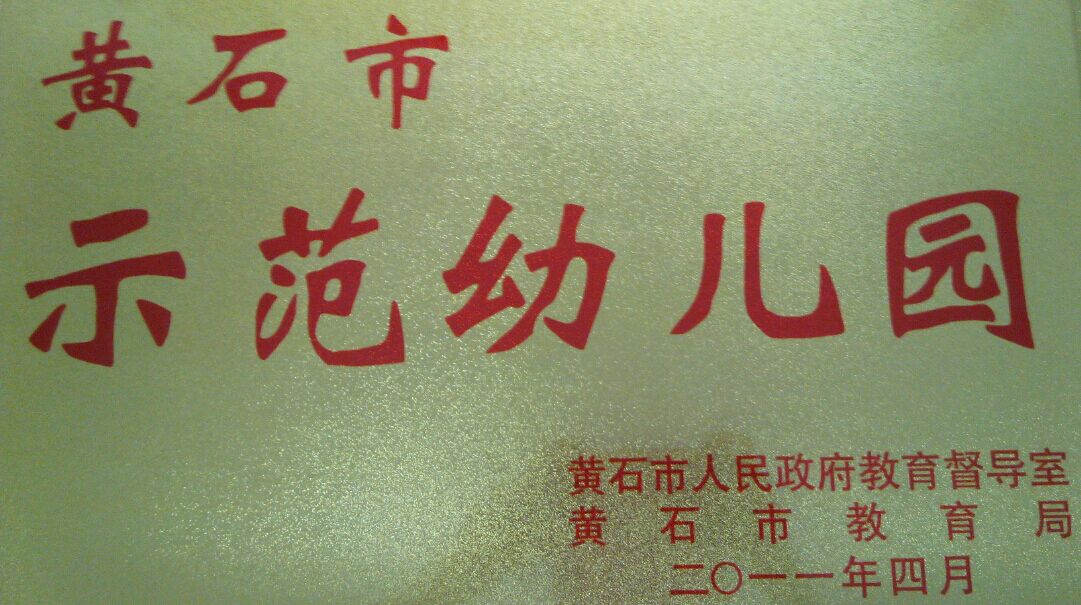 黄石市
示范幼儿园
黄石市人民政府教育督导室
黄石市教育局
二〇一一年四月